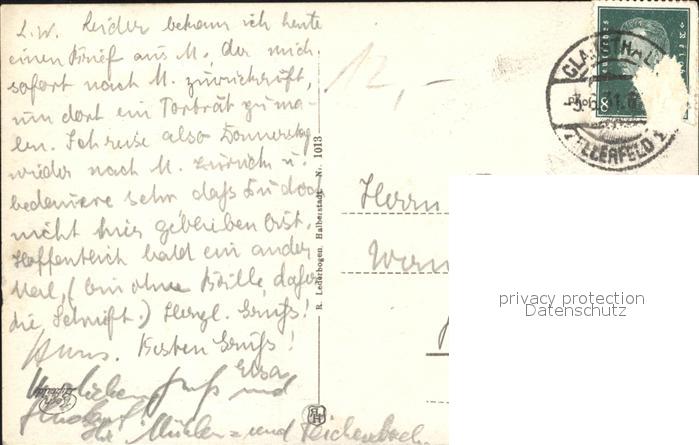 L.W. Leider bekam ich heute
einen Brief aus M., der mich
sofort nach M. zurückruft,
um dort ein Porträt zu ma-
len. Ich reise also Donnerstag
wieder nach M. zurück u.
bedauere sehr daß Du doch
nicht hier geblieben bist.
Hoffentlich bald ein ander
Mal, (bin ohne Brille, daher
die Schrift.) Herzl. Gruß!
Hans. Besten Gruß!
Elsa
Gruß und
Mühlen= und Reichenbach
R. Lederbogen, Halberstadt. Nr. 1013
12,-
8
CLAUSTHAL
ZELLERFELD 1
Herrn
privacy protection
Datenschutz